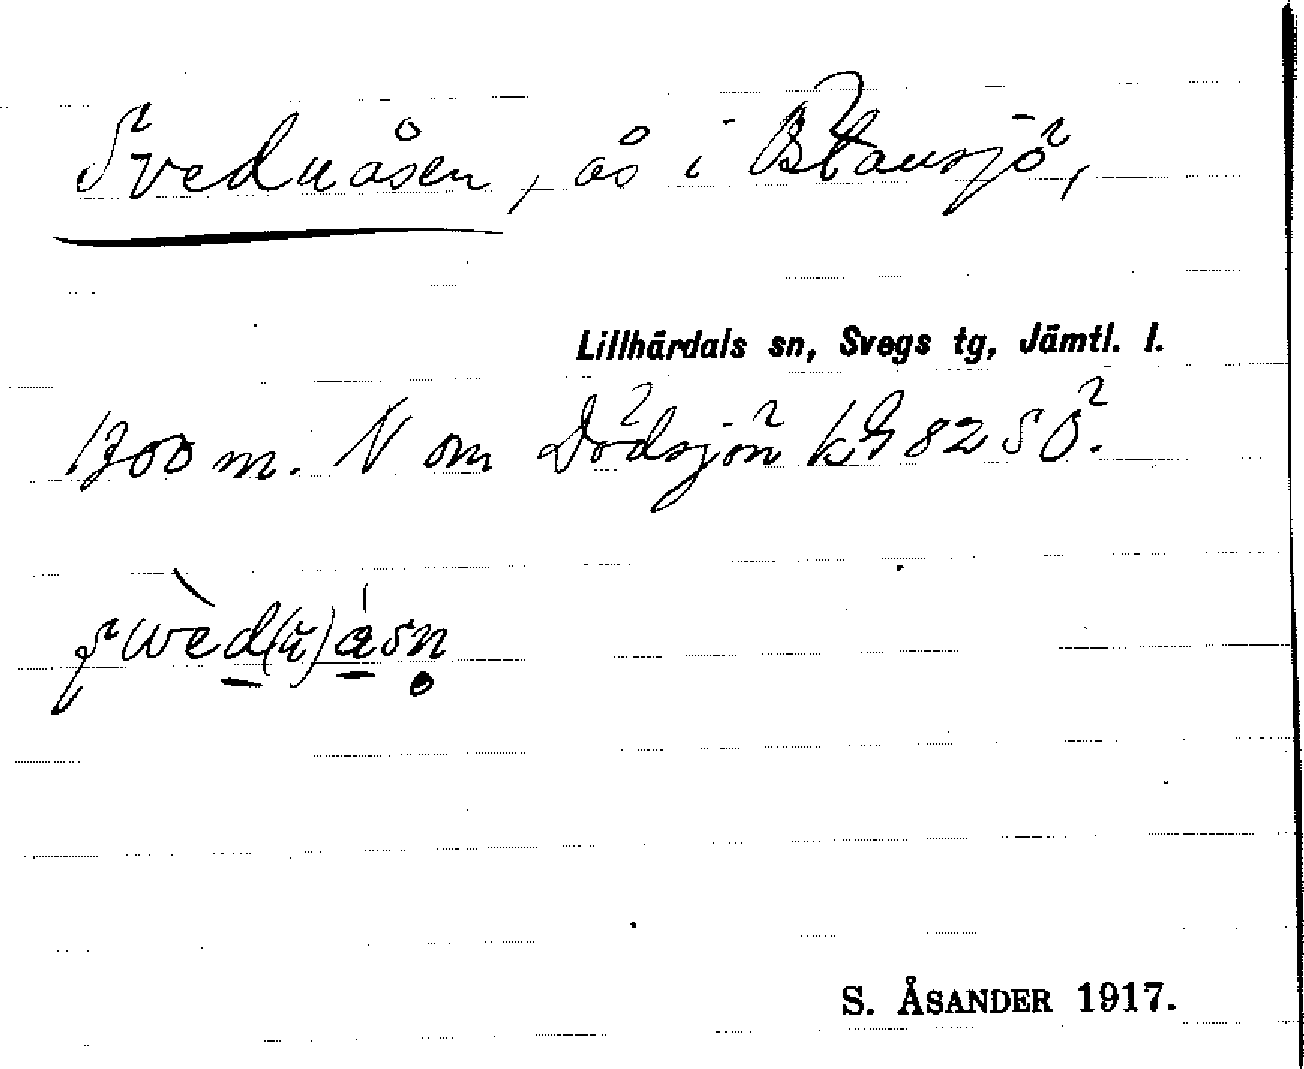 Svednåsen, ås i Blansjö,
Lillhärdals sn, Svegs tg, Jämtl. l.
1300 m. N om Dödsjön kbl 82 SÖ.
S. ÅSANDER 1917.